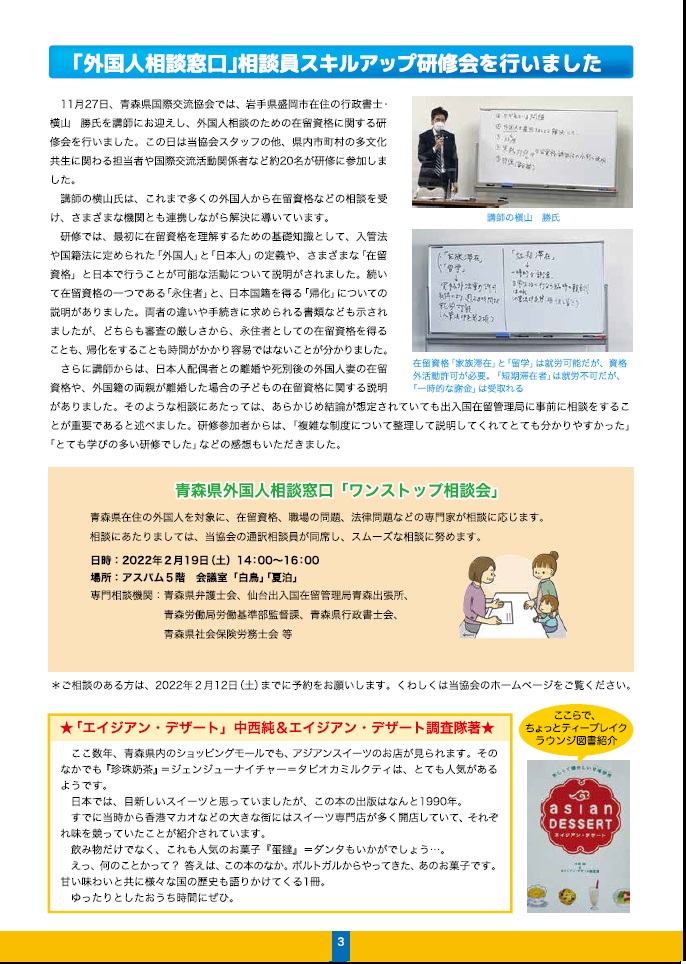 「外国人相談窓口」相談員スキルアップ研修会を行いました
11月27日、青森県国際交流協会では、岩手県盛岡市在住の行政書士・
横山　勝氏を講師にお迎えし、外国人相談のための在留資格に関する研
修会を行いました。この日は当協会スタッフの他、県内市町村の多文化
共生に関わる担当者や国際交流活動関係者など約20名が研修に参加しま
した。
講師の横山氏は、これまで多くの外国人から在留資格などの相談を受
け、さまざまな機関とも連携しながら解決に導いています。
研修では、最初に在留資格を理解するための基礎知識として、入管法
や国籍法に定められた「外国人」と「日本人」の定義や、さまざまな「在留
資格」と日本で行うことが可能な活動について説明がされました。続い
て在留資格の一つである「永住者」と、日本国籍を得る「帰化」についての
説明がありました。両者の違いや手続きに求められる書類なども示され
ましたが、どちらも審査の厳しさから、永住者としての在留資格を得る
ことも、帰化をすることも時間がかかり容易ではないことが分かりました。
さらに講師からは、日本人配偶者との離婚や死別後の外国人妻の在留
資格や、外国籍の両親が離婚した場合の子どもの在留資格に関する説明
がありました。そのような相談にあたっては、あらかじめ結論が想定されていても出入国在留管理局に事前に相談をするこ
とが重要であると述べました。研修参加者からは、「複雑な制度について整理して説明してくれてとても分かりやすかった」
「とても学びの多い研修でした」などの感想もいただきました。
講師の横山　勝氏
「家族滞在」
「留学」
「短期滞在」
在留資格「家族滞在」と「留学」は就労可能だが、資格
外活動許可が必要。「短期滞在者」は就労不可だが、
「一時的な謝金」は受取れる
青森県外国人相談窓口「ワンストップ相談会」
青森県在住の外国人を対象に、在留資格、職場の問題、法律問題などの専門家が相談に応じます。
相談にあたりましては、当協会の通訳相談員が同席し、スムーズな相談に努めます。
日時：2022年2月19日（土）14：00〜16：00
場所：アスパム5階　会議室「白鳥」「夏泊」
専門相談機関：青森県弁護士会、仙台出入国在留管理局青森出張所、
青森労働局労働基準部監督課、青森県行政書士会、
青森県社会保険労務士会 等
＊ご相談のある方は、2022年2月12日（土）までに予約をお願いします。くわしくは当協会のホームページをご覧ください。
★「エイジアン・デザート」中西純＆エイジアン・デザート調査隊著★
ここ数年、青森県内のショッピングモールでも、アジアンスイーツのお店が見られます。その
なかでも『珍珠奶茶』＝ジェンジューナイチャー＝タピオカミルクティは、とても人気がある
ようです。
日本では、目新しいスイーツと思っていましたが、この本の出版はなんと1990年。
すでに当時から香港マカオなどの大きな街にはスイーツ専門店が多く開店していて、それぞ
れ味を競っていたことが紹介されています。
飲み物だけでなく、これも人気のお菓子『蛋撻』＝ダンタもいかがでしょう…。
えっ、何のことかって？ 答えは、この本のなか。ポルトガルからやってきた、あのお菓子です。
甘い味わいと共に様々な国の歴史も語りかけてくる1冊。
ゆったりとしたおうち時間にぜひ。
ここらで、
ちょっとティーブレイク
ラウンジ図書紹介
asian
DESSERT
エイジアン・デザート
3